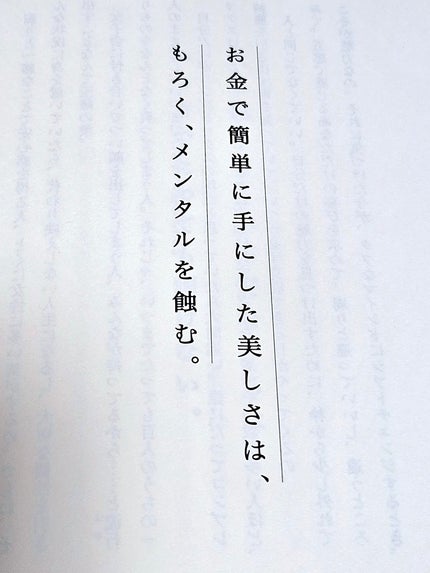 お金で簡単に手にした美しさは、
もろく、メンタルを蝕む。